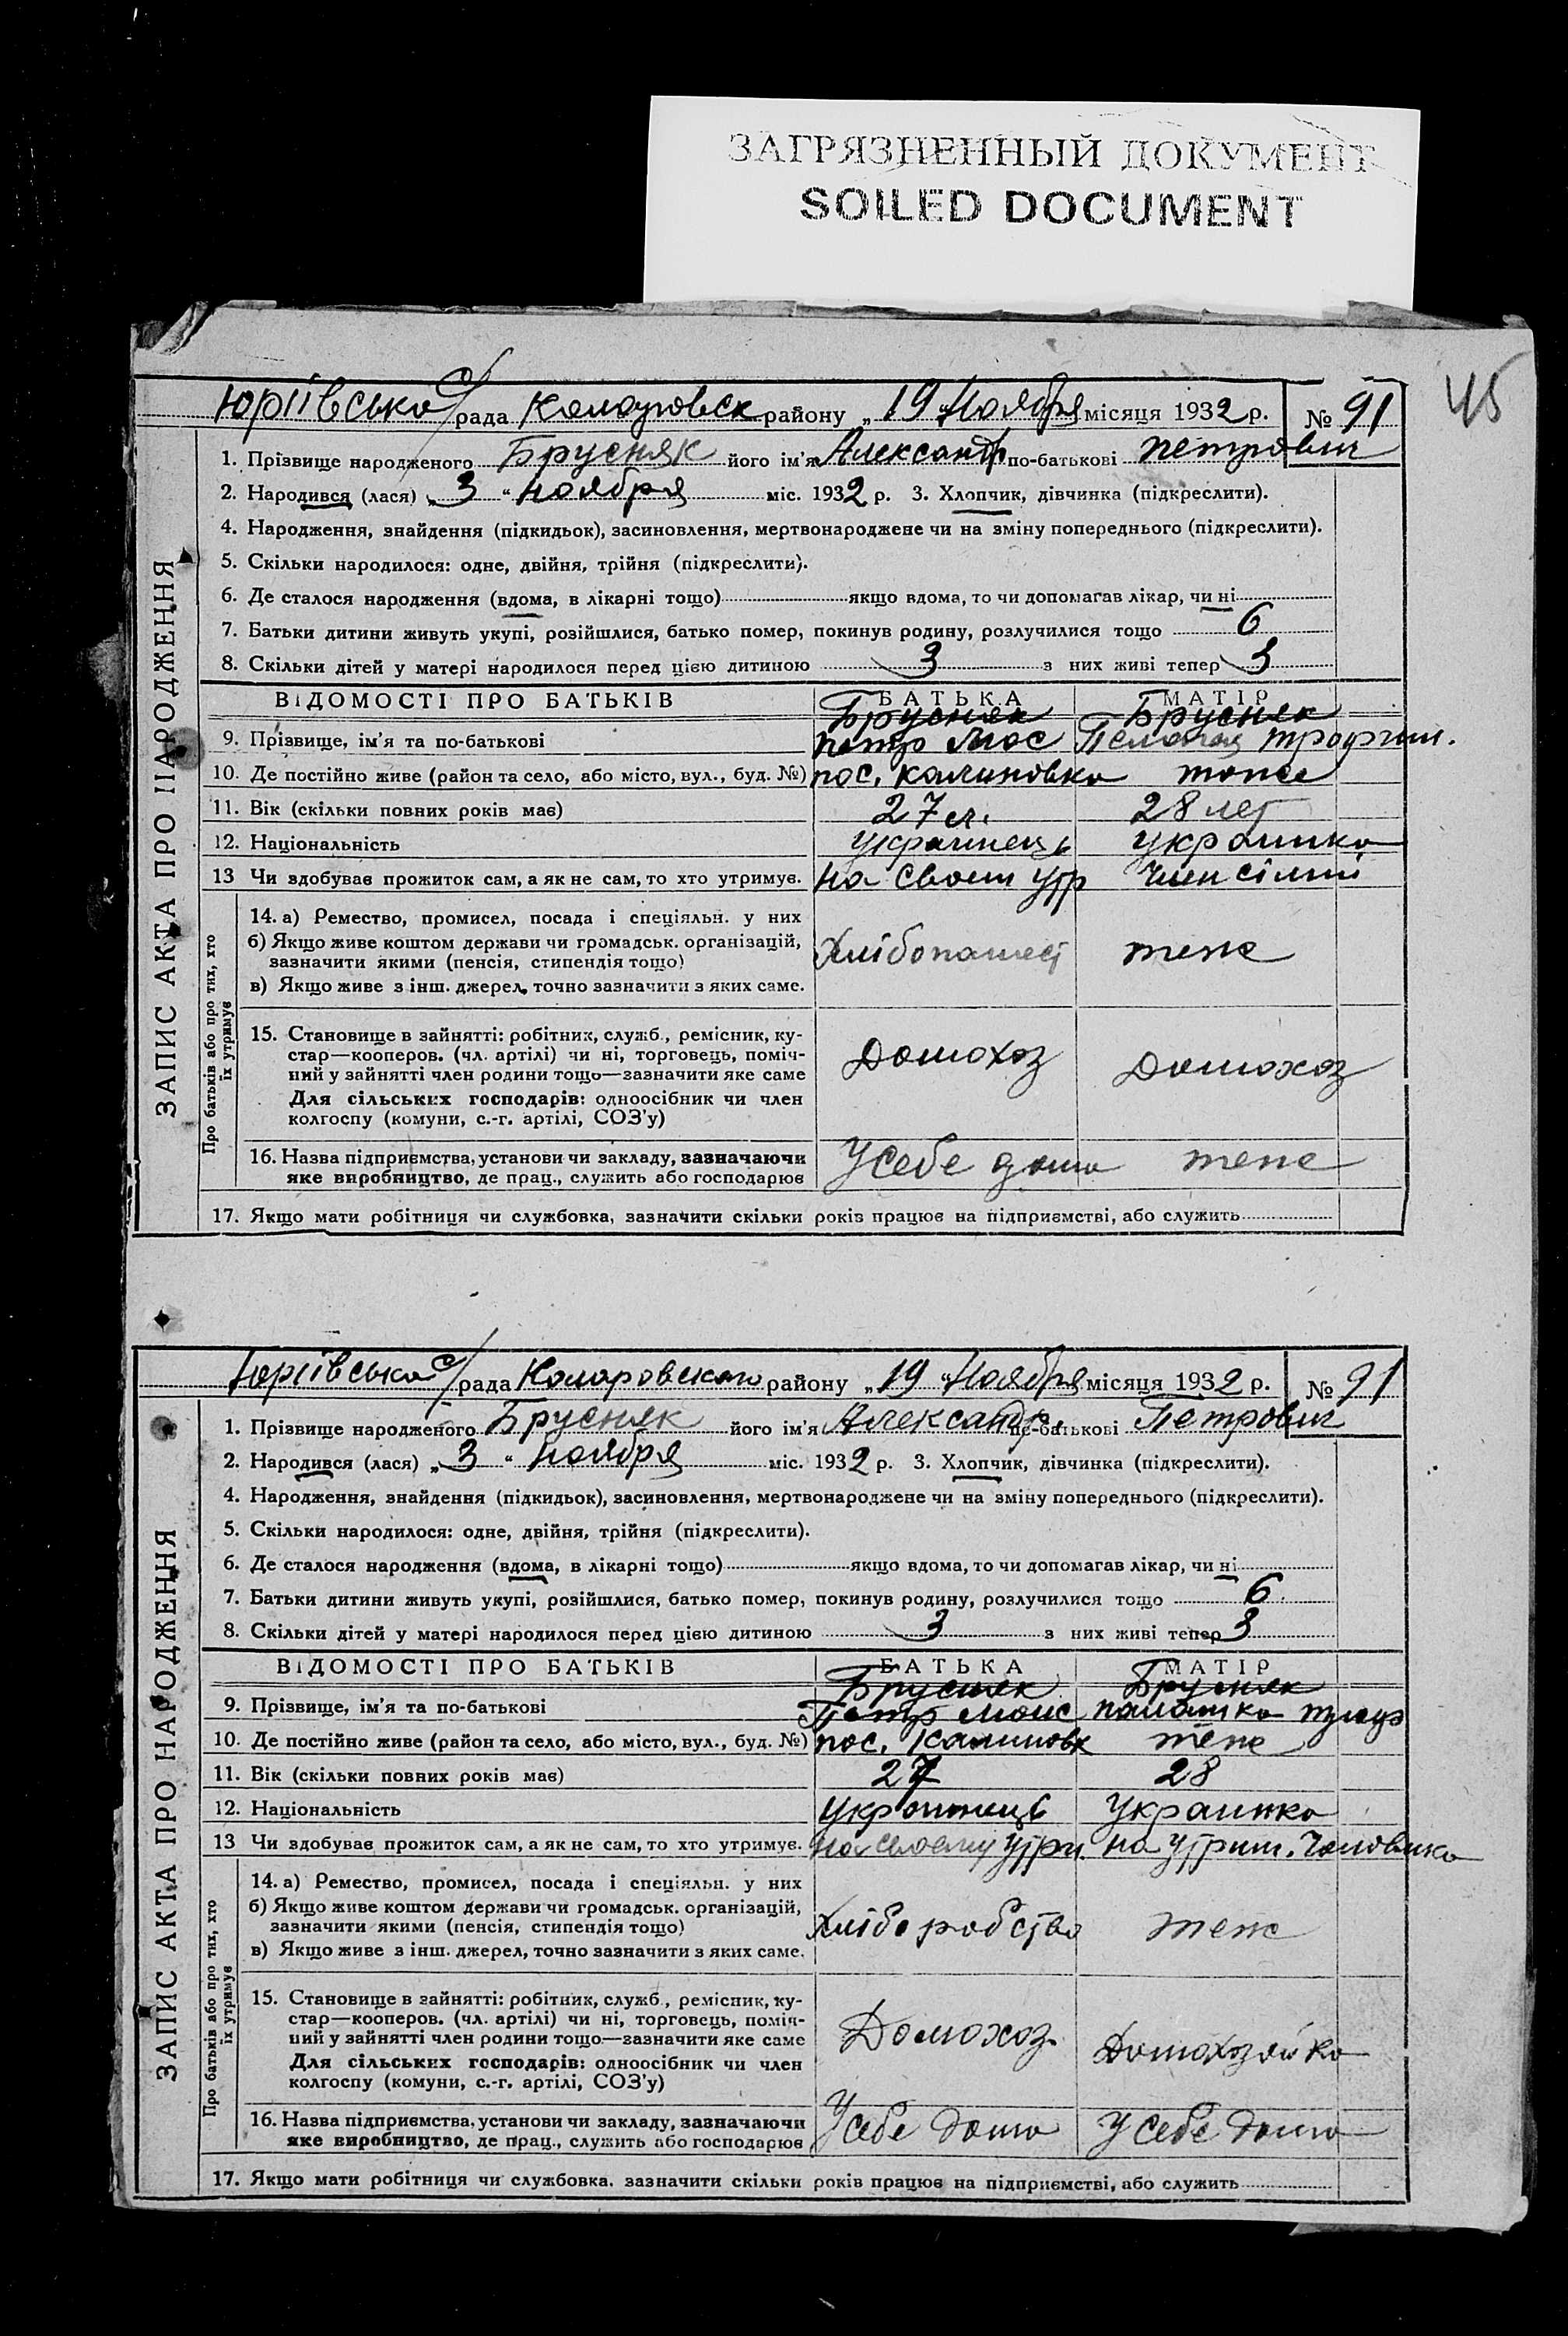 ЗАГРЯЗНЕННЫЙ ДОКУМЕНТ
SOILED DOCUMENT
45
Юріївська с/рада района „19 „ Ноября місяця 1932 р. № 91
1. Прізвище народженого Брусняк його ім'я Александр по-батькові Петрович
2. Народився (лася) „3 “ ноября міс. 1932 р. 3. Хлопчик, дівчинка (підкреслити).
4. Народження, знайдення (підкидьок), засиновлення, мертвонароджене чи на зміну попереднього (підкреслити).
5. Скільки народилося: одне, двійня, трійня (підкреслити).
6. Де сталося народження (вдома, в лікарні тощо) якщо вдома, то чи допомагав лікар, чи ні
7. Батьки дитини живуть укупі, розійшлися, батько помер, покинув родину, розлучилися тощо 6
8. Скільки дітей у матері народилося перед цією дитиною 3 з них живі тепер 3
ВІДОМОСТІ ПРО БАТЬКІВ БАТЬКА МАТІР
Брусняк Брусняк
9. Прізвище, ім'я та по-батькові Петр Мос Трофим.
10. Де постійно живе (район та село, або місто, вул., буд. №) пос. Калиновка тоже
11. Вік (скільки повних років має) 27 л. 28 лет
12. Національність Украинець Украинка
13 Чи здобував прожиток сам, а як не сам, то хто утримує. на своем утр Член сімні
14. а) Ремество, промисел, посада і спеціяльн. у них
б) Якщо живе коштом держави чи громадськ. організацій,
зазначити якими (пенсія, стипендія тощо)
теж
в) Якщо живе з інш. джерел, точно зазначити з яких саме.
15. Становище в зайнятті: робітник, служб., ремісник, ку-
стар—кооперов. (чл. артілі) чи ні, торговець, поміч-
ний у зайнятті член родини тощо—зазначити яке саме
Домохоз Домохоз
Для сільських господарів: одноосібник чи член
колгоспу (комуни, с.-г. артілі, СОЗ'у)
16. Назва підприємства, установи чи закладу, зазначаючи
яке виробництво, де прац., служить або господарює
У себе дома теж
17. Якщо мати робітниця чи службовка, зазначити скільки років працює на підприємстві, або служить
ЗАПИС АКТА ПРО НАРОДЖЕННЯ
Про батьків або про тих, хто
їх утримує
Юріївська с/рада Комаровского району „19 “ Ноября місяця 1932 р. № 91
1. Прізвище народженого Брусняк його ім'я Александр по-батькові Петрович
2. Народився (лася) „3 “ ноября міс. 1932 р. 3. Хлопчик, дівчинка (підкреслити).
4. Народження, знайдення (підкидьок), засиновлення, мертвонароджене чи на зміну попереднього (підкреслити).
5. Скільки народилося: одне, двійня, трійня (підкреслити).
6. Де сталося народження (вдома, в лікарні тощо) якщо вдома, то чи допомагав лікар, чи ні
7. Батьки дитини живуть укупі, розійшлися, батько помер, покинув родину, розлучилися тощо 6
8. Скільки дітей у матері народилося перед цією дитиною 3 з них живі тепер 3
ВІДОМОСТІ ПРО БАТЬКІВ БАТЬКА МАТІР
Брусняк Брусняк
9. Прізвище, ім'я та по-батькові Петр Моис
10. Де постійно живе (район та село, або місто, вул., буд. №) пос. Калиновк теж
11. Вік (скільки повних років має) 27 28
12. Національність Украинець Украинка
13 Чи здобував прожиток сам, а як не сам, то хто утримує. на своему утри. на утрим. Человика
14. а) Ремество, промисел, посада і спеціяльн. у них
б) Якщо живе коштом держави чи громадськ. організацій,
зазначити якими (пенсія, стипендія тощо)
Хліборобство теж
в) Якщо живе з інш. джерел, точно зазначити з яких саме.
15. Становище в зайнятті: робітник, служб., ремісник, ку-
стар—кооперов. (чл. артілі) чи ні, торговець, поміч-
ний у зайнятті член родини тощо—зазначити яке саме
Домохоз. Домохозяйка
Для сільських господарів: одноосібник чи член
колгоспу (комуни, с.-г. артілі, СОЗ'у)
16. Назва підприємства, установи чи закладу, зазначаючи
яке виробництво, де прац., служить або господарює
У себе дома У себе дома
17. Якщо мати робітниця чи службовка, зазначити скільки років працює на підприємстві, або служить
ЗАПИС АКТА ПРО НАРОДЖЕННЯ
Про батьків або про тих, хто
їх утримує